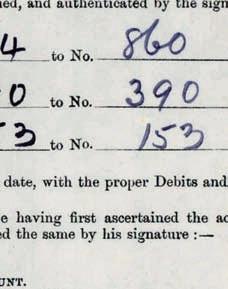 ed, and authenticated by the sign
4 to No. 860
0 to No. 390
53 to No. 153
date, with the proper Debits and
e having first ascertained the ac
ed the same by his signature :—
UNT.